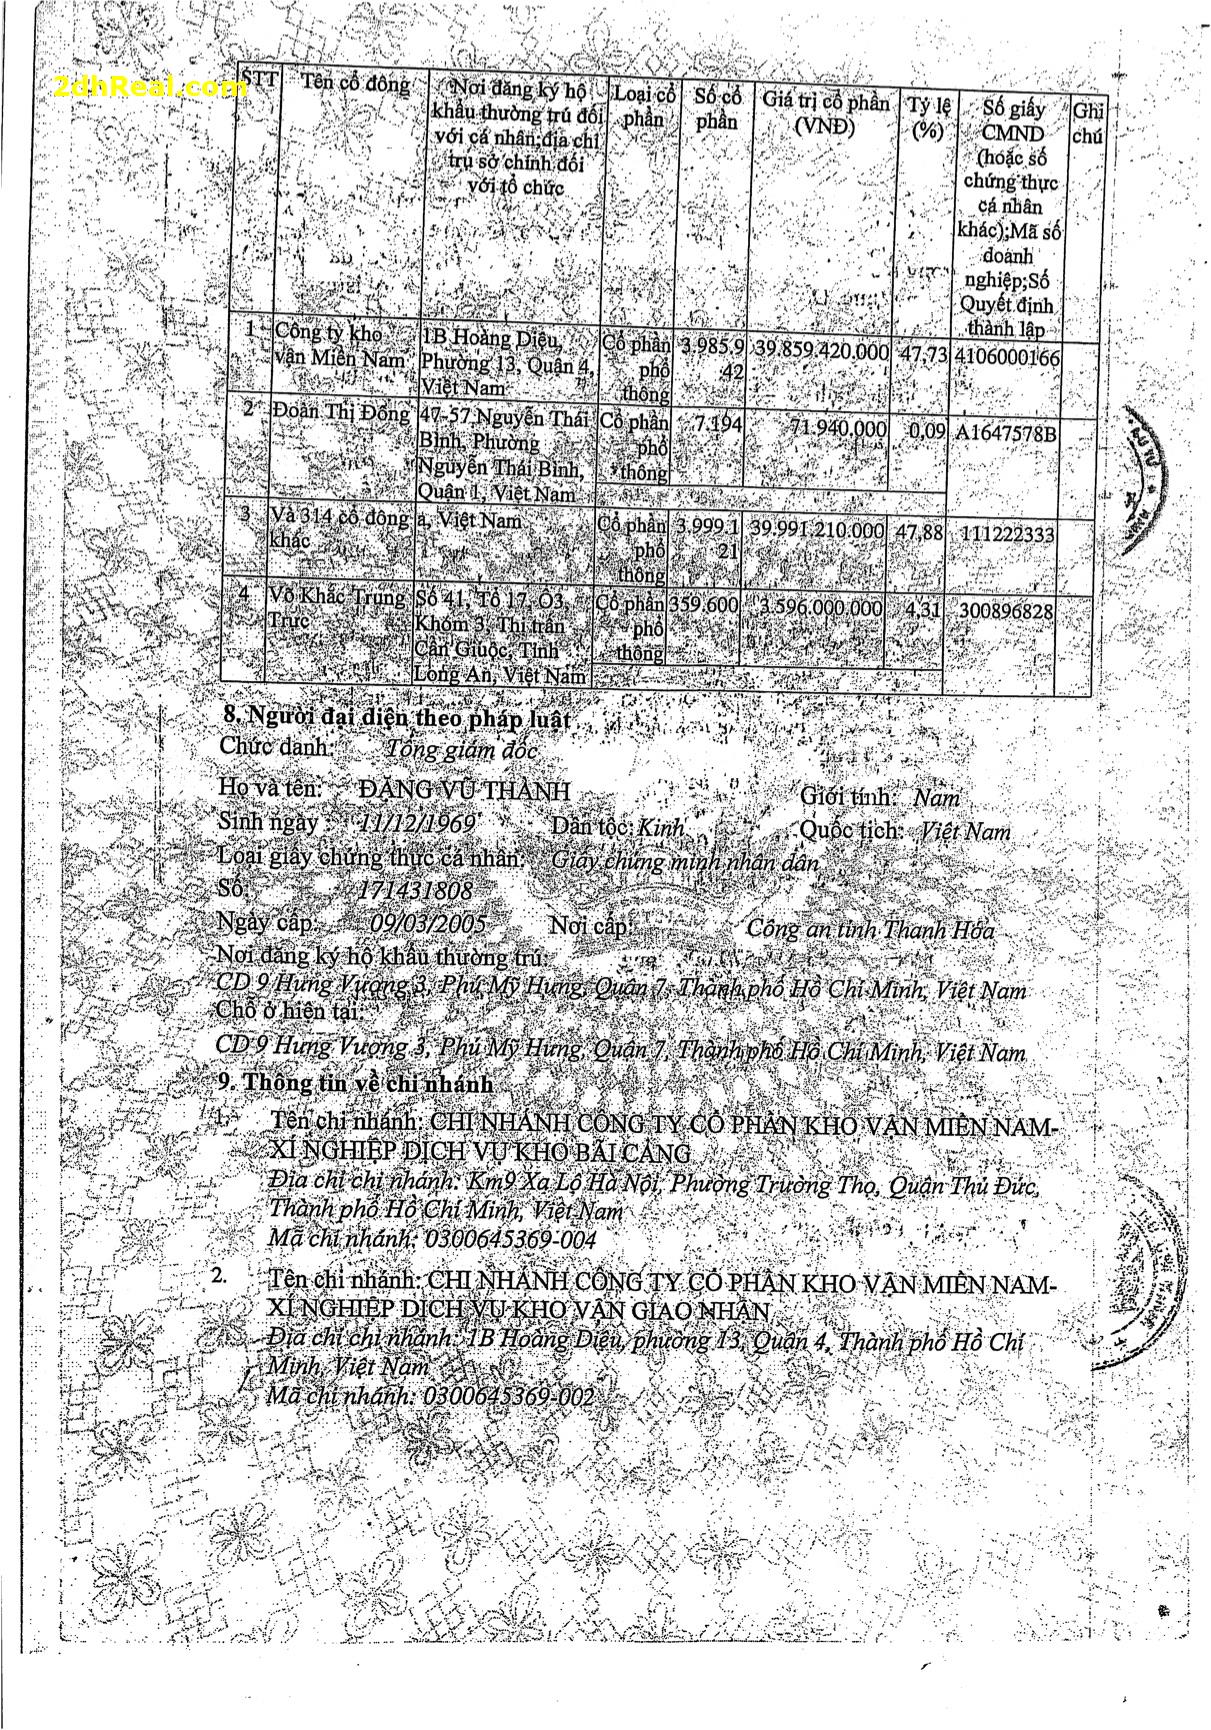 2dhReal.com
STT
Tên cổ đông
Nơi đăng ký hộ
khẩu thường trú đối
với cá nhân;địa chỉ
trụ sở chính đối
với tổ chức
Loại cổ
phần
Số cổ
phần
Giá trị cổ phần
(VNĐ)
Tỷ lệ
(%)
Số giấy
CMND
(hoặc số
chứng thực
cá nhân
khác);Mã số
doanh
nghiệp;Số
Quyết định
thành lập
Ghi
chú
1
Công ty kho
vận Miền Nam
1B Hoàng Diệu,
Phường 13, Quận 4,
Việt Nam
Cổ phần
phổ
thông
3.985.9
42
39.859.420.000
47,73
4106000166
2
Đoàn Thị Đông
47-57 Nguyễn Thái
Bình, Phường
Nguyễn Thái Bình,
Quận 1, Việt Nam
Cổ phần
phổ
thông
7.194
71.940.000
0,09
A1647578B
3
Và 314 cổ đông
khác
a, Việt Nam
Cổ phần
phổ
thông
3.999.1
21
39.991.210.000
47,88
111222333
4
Võ Khắc Trung
Trực
Số 41, Tổ 17, Ô3,
Khóm 3, Thị trấn
Cần Giuộc, Tỉnh
Long An, Việt Nam
Cổ phần
phổ
thông
359.600
3.596.000.000
4,31
300896828
8. Người đại diện theo pháp luật
Chức danh: Tổng giám đốc
Họ và tên: ĐẶNG VŨ THÀNH Giới tính: Nam
Sinh ngày : 11/12/1969 Dân tộc: Kinh Quốc tịch: Việt Nam
Loại giấy chứng thực cá nhân: Giấy chứng minh nhân dân
Số: 171431808
Ngày cấp: 09/03/2005 Nơi cấp: Công an tỉnh Thanh Hóa
Nơi đăng ký hộ khẩu thường trú:
CD 9 Hưng Vượng 3, Phú Mỹ Hưng, Quận 7, Thành phố Hồ Chí Minh, Việt Nam
Chỗ ở hiện tại:
CD 9 Hưng Vượng 3, Phú Mỹ Hưng, Quận 7, Thành phố Hồ Chí Minh, Việt Nam
9. Thông tin về chi nhánh
1. Tên chi nhánh: CHI NHÁNH CÔNG TY CỔ PHẦN KHO VẬN MIỀN NAM-
XÍ NGHIỆP DỊCH VỤ KHO BÃI CẢNG
Địa chỉ chi nhánh: Km9 Xa Lộ Hà Nội, Phường Trường Thọ, Quận Thủ Đức,
Thành phố Hồ Chí Minh, Việt Nam
Mã chi nhánh: 0300645369-004
2. Tên chi nhánh: CHI NHÁNH CÔNG TY CỔ PHẦN KHO VẬN MIỀN NAM-
XÍ NGHIỆP DỊCH VỤ KHO VẬN GIAO NHẬN
Địa chỉ chi nhánh: 1B Hoàng Diệu, phường 13, Quận 4, Thành phố Hồ Chí
Minh, Việt Nam
Mã chi nhánh: 0300645369-002